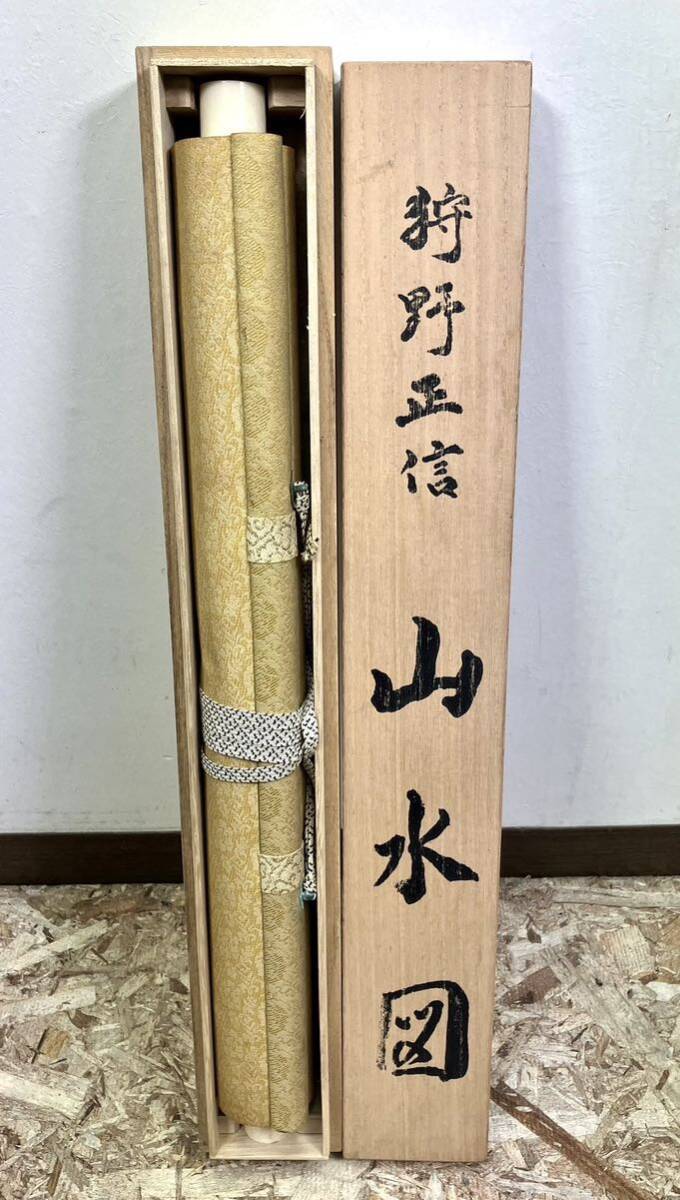 狩野正信
山水図